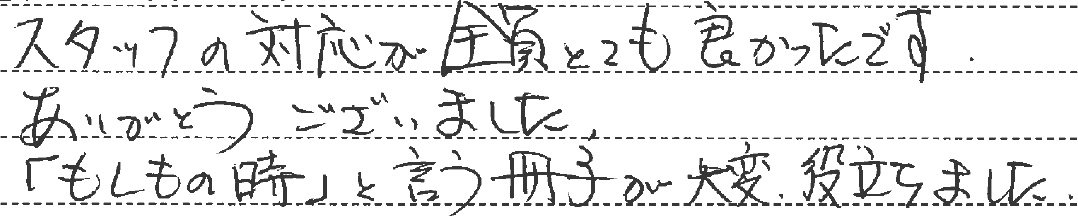 スタッフの対応が全員とても良かったです.
ありがとうございました.
「もしもの時」と言う冊子が大変.役立ちました.